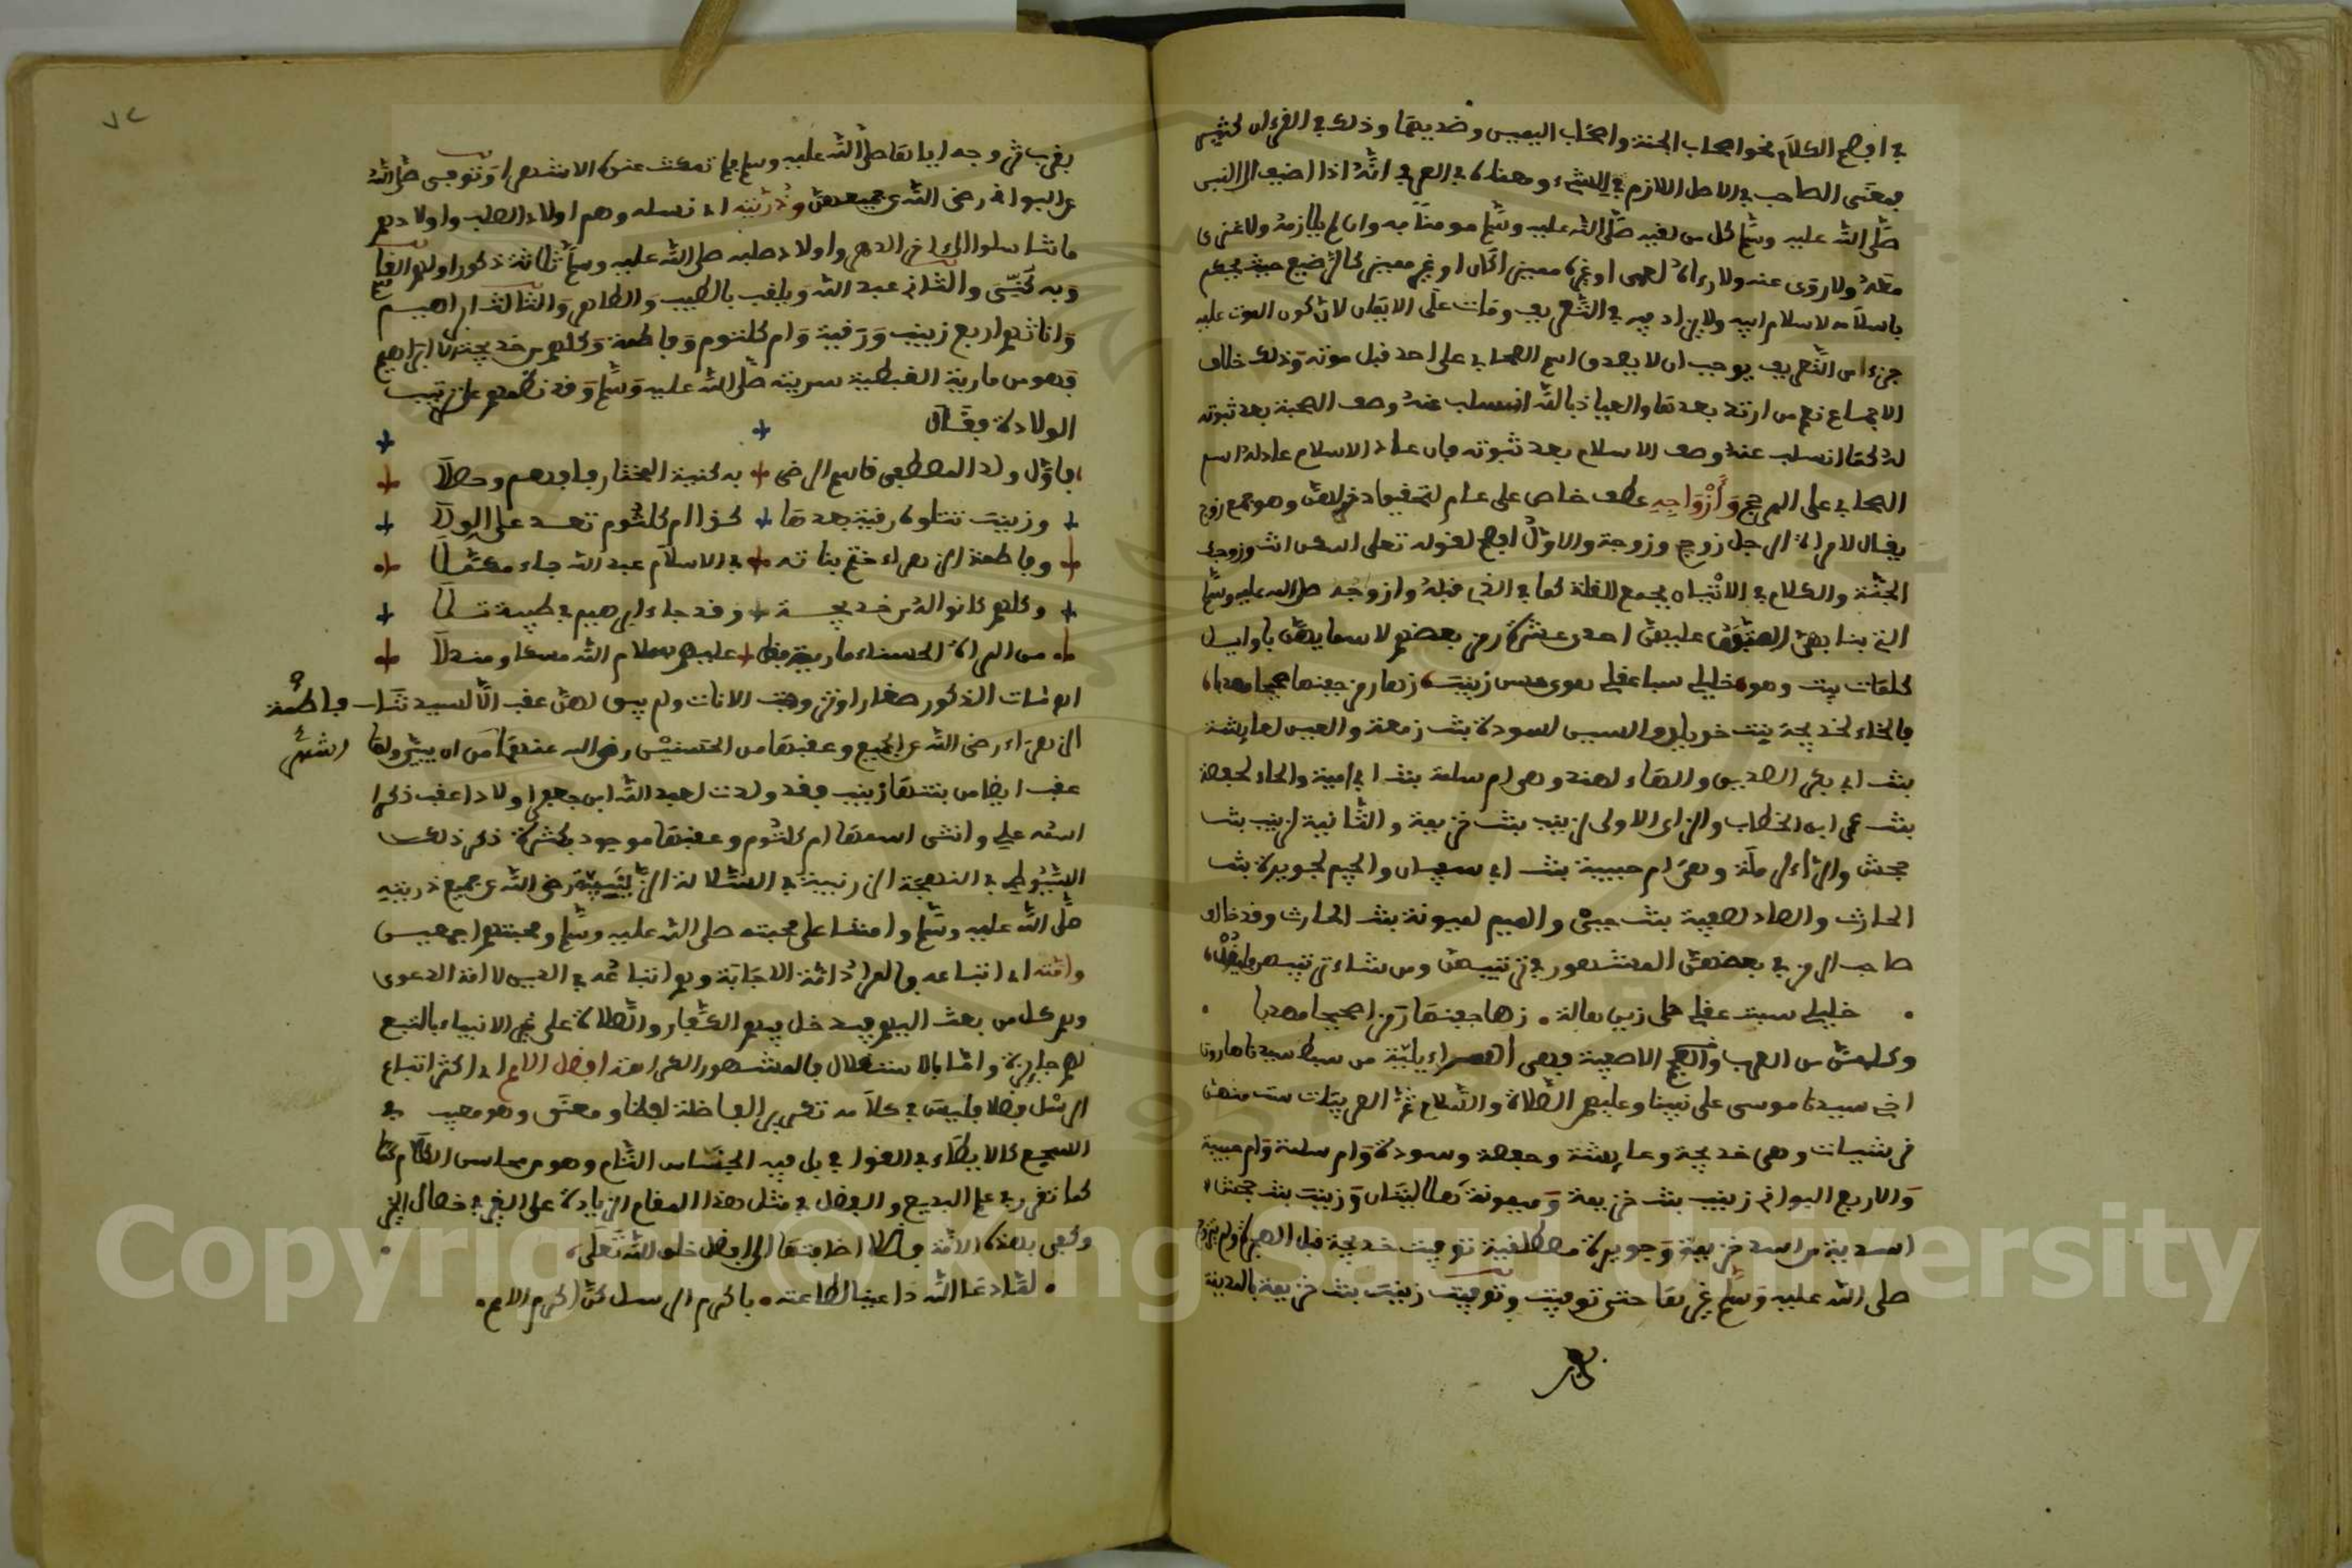 في افصح الكلام نحو اصحاب الجنة واصحاب اليمين وضديهما وذلك في القرءان كثير
بمعنى الصاحب في الاصل اللازم في الشيء ومعناه في العرف انه اذا اضيف الى النبي
صلى الله عليه وسلم كل من لقيه صلى الله عليه وسلم مومنا به وان لم يلازمه ولا غزى
معه ولا روى عنه ولا رءاه لعمى او غيره مميز كان او غير مميز كالرضيع حيث يحكم
باسلامه لاسلام ابيه ولا يزاد فيه في التعريف ومات على الايمان لان كون الموت عليه
جزءا من التعريف يوجب ان لا يصدق اسم الصحابي على احد قبل موته وذلك خلاف
الاجماع نعم من ارتد بعدها والعياذ بالله انسلب عنه وصف الصحبة بعد ثبوته
له كما انسلب عنه وصف الاسلام بعد ثبوته فان عاد الاسلام عاد له اسم
الصحابي على المرجح وأزواجه عطف خاص على عام وهو جمع زوج
يقال لامراة الرجل زوج وزوجة والاول افصح لقوله تعلى اسكن انت وزوجك
الجنة والكلام في الاتيان بجمع القلة كما في الذي قبله وازواجه صلى الله عليه وسلم
التي بنا بهن المتفق عليهن احدى عشرة رمز بعضهم لاسمايهن باوايل
كلمات بيت وهو خليلي سبا عقلي هوى زينب زها رمز جفنها
فالخاء لخديجة بنت خويلد والسين لسودة بنت زمعة والعين لعايشة
بنت ابي بكر الصديق والهاء لهند وهي ام سلمة بنت ابي امية والحاء لحفصة
بنت عمر ابن الخطاب والزاي الاولى لزينب بنت خزيمة والثانية لزينب بنت
جحش والراء لرملة وهي ام حبيبة بنت ابي سفيان والجيم لجويرة بنت
الحارث والصاد لصفية بنت حيي والميم لميمونة بنت الحارث وقد خالف
صاحب الرمز في بعضهن المشهور في ترتيبهن ومن شاء ترتيبهن فليقل
خليلي سبت عقلي حلى زين هالة زها جفنها رمز صحيحا مهديا
وكلهن من العرب الا صفية فهي اسراءيلية من سبط سيدنا هارون
اخي سيدنا موسى على نبينا وعليهم الصلاة والسلام ثم العربيات ست منهن
قرشيات وهي خديجة وعايشة وحفصة وسودة وام سلمة وام حبيبة
والاربع البواقي زينب بنت خزيمة وميمونة هلاليتان وزينب بنت جحش
اسدية من اسد خزيمة وجويرة مصطلقية توفيت خديجة قبل الهجرة ولم يتزوج
صلى الله عليه وسلم غيرها حتى توفيت وتوفيت زينب بنت خزيمة بالمدينة
بقرب تزوجه اياها صلى الله عليه وسلم فلم تمكث عنده الا شهرا وتوفي صلى الله
عن البواقي رضي الله عن جميعهن وذريته اي نسله وهم اولاد الصلب واولادهم
ما تناسلوا الى اخر الدهر واولاد صلبه صلى الله عليه وسلم ثلاثة ذكور اولهم القاسم
وبه كني والثاني عبد الله ويلقب بالطيب والطاهر والثالث ابراهيم
واناثهم اربع زينب ورقية وام كلثوم وفاطمة وكلهم من خديجة الا ابراهيم
فهو من مارية القبطية سريته صلى الله عليه وسلم وقد نظمهم على ترتيب
الولادة فقال
فاول ولد المصطفى قاسم الرضى به كنية المختار فافهم وحصلا
وزينب تتلوه رقية بعدها كذا ام كلثوم تعد على الولا
وفاطمة الزهراء ختم بناته في الاسلام عبد الله جاء مكملا
وكلهم كانوا له من خديجة وقد جاء ابرهيم في طيبة تلا
من المراة الحسناء مارية عليهم سلام الله مسكا ومندلا
مات الذكور صغارا وتزوجت الاناث ولم يبق لهن عقب الا لسيدتنا فاطمة
الزهراء رضي الله عن الجميع وعقبها من الحسنين رضي الله عنهما
عقب ايضا من بنتها زينب فقد ولدت لعبد الله ابن جعفر اولادا عقب ذكرا
اسمه علي وانثى اسمها ام كلثوم وعقبها موجود بكثرة ذكر ذلك
السيوطي في العجاجة الزرنبية في السلالة الزينبية رضي الله عن جميع ذريته
صلى الله عليه وسلم وامتنا على محبته صلى الله عليه وسلم ومحبتهم اجمعين
وامته اي اتباعه فالمراد امة الاجابة وهم اتباعه في الدين لا امة الدعوى
وهم كل من بعث اليهم فيدخل فيهم الكفار والصلاة على غير الانبياء بالتبع
لهم جايزة واما بالاستقلال فالمشهور الكراهة افضل الامم اي اكثر اتباع
الرسل فضلا فليس في كلامه تكرير الفاصلة لفظا ومعنى وهو معيب في
السجع كالايطاء في القوافي بل فيه الجناس التام وهو من محاسن الكلام
كما تقرر في علم البديع والفضل في مثل هذا المقام الزيادة على الغير في خصال الخير
وكفى بهذه الامة فضلا اضافتها الى افضل خلق الله تعلى
لما دعا الله داعينا لطاعته باكرم الرسل كنا اكرم الامم